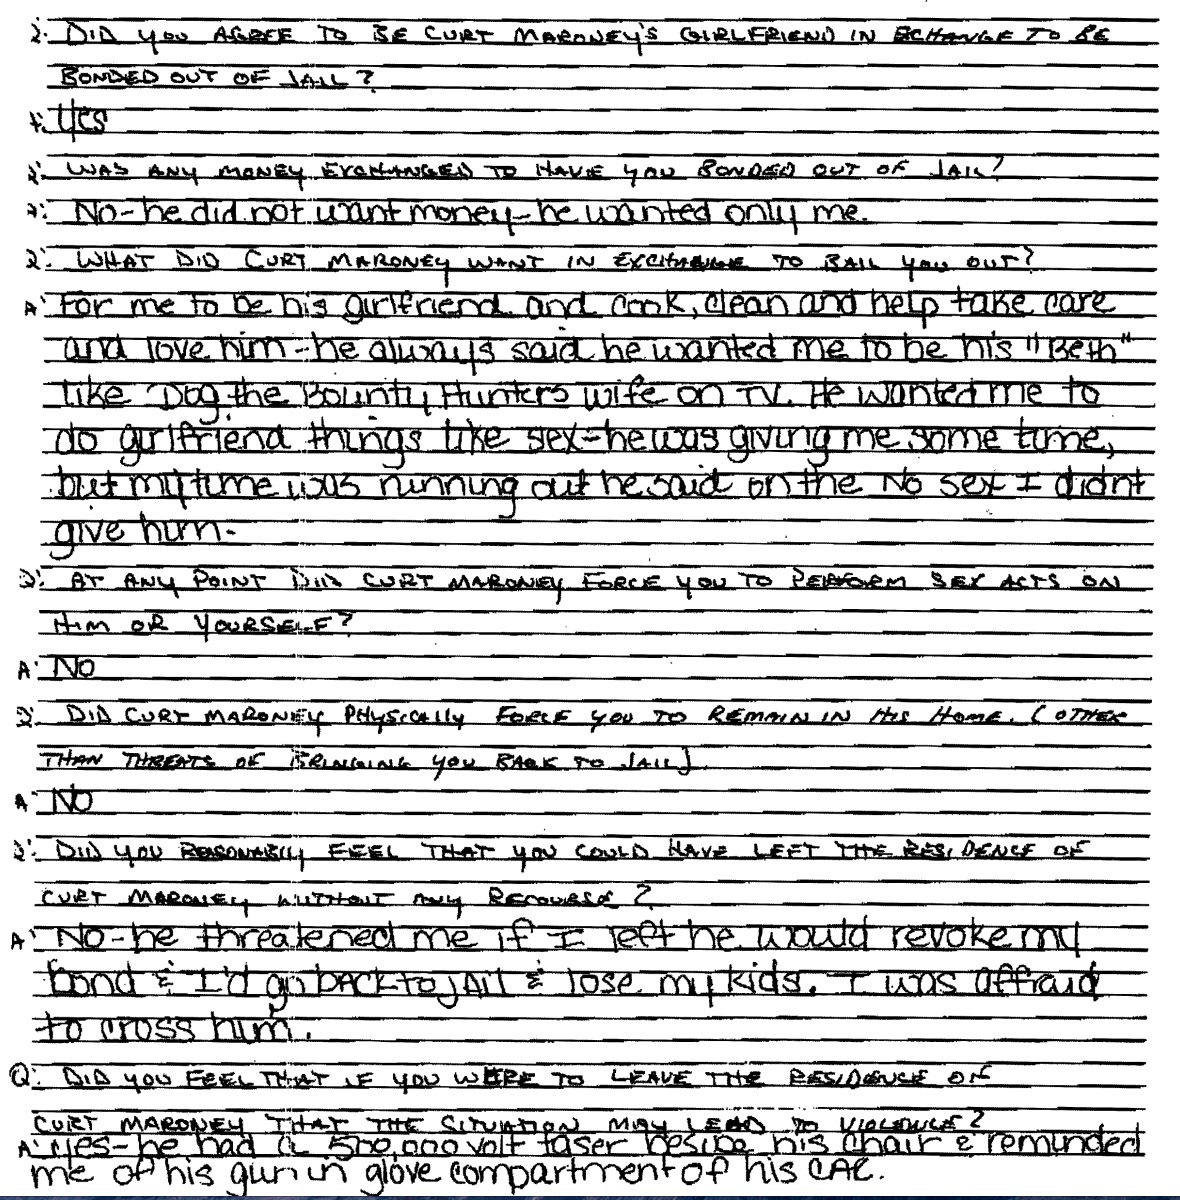 Q: DID YOU AGREE TO BE CURT MARONEY'S GIRLFRIEND IN ECHANGE TO BE
BONDED OUT OF JAIL?
A: Yes
Q: WAS ANY MONEY EXCHANGED TO HAVE YOU BONDED OUT OF JAIL?
A: No-he did not want money-he wanted only me.
Q: WHAT DID CURT MARONEY WANT IN EXCHANGE TO BAIL YOU OUT?
A: For me to be his girlfriend and cook, clean and help take care
and love him-he always said he wanted me to be his "Beth"
like Dog the Bounty Hunters wife on TV. He wanted me to
do girlfriend things like sex-he was giving me some time,
but my time was running out he said on the No sex I didnt
give him.
Q: AT ANY POINT DID CURT MARONEY FORCE YOU TO PERFORM SEX ACTS ON
HIM OR YOURSELF?
A: NO
Q: DID CURT MARONEY PHYSICALLY FORCE YOU TO REMAIN IN HIS HOME. (OTHER
THAN THREATS OF BRINGING YOU BACK TO JAIL)
A: NO
Q: DID YOU REASONABLY FEEL THAT YOU COULD HAVE LEFT THE RESIDENCE OF
CURT MARONEY WITHOUT ANY RECOURSE?
A: No-he threatened me if I left he would revoke my
bond & I'd go back to JAIL & lose my kids. I was affraid
to cross him.
Q: DID YOU FEEL THAT IF YOU WERE TO LEAVE THE RESIDENCE OF
CURT MARONEY THAT THE SITUATION MAY LEAD TO VIOLENCE?
A: Yes-he had a 500,000 volt taser beside his chair & reminded
me of his gun in glove compartment of his CAR.